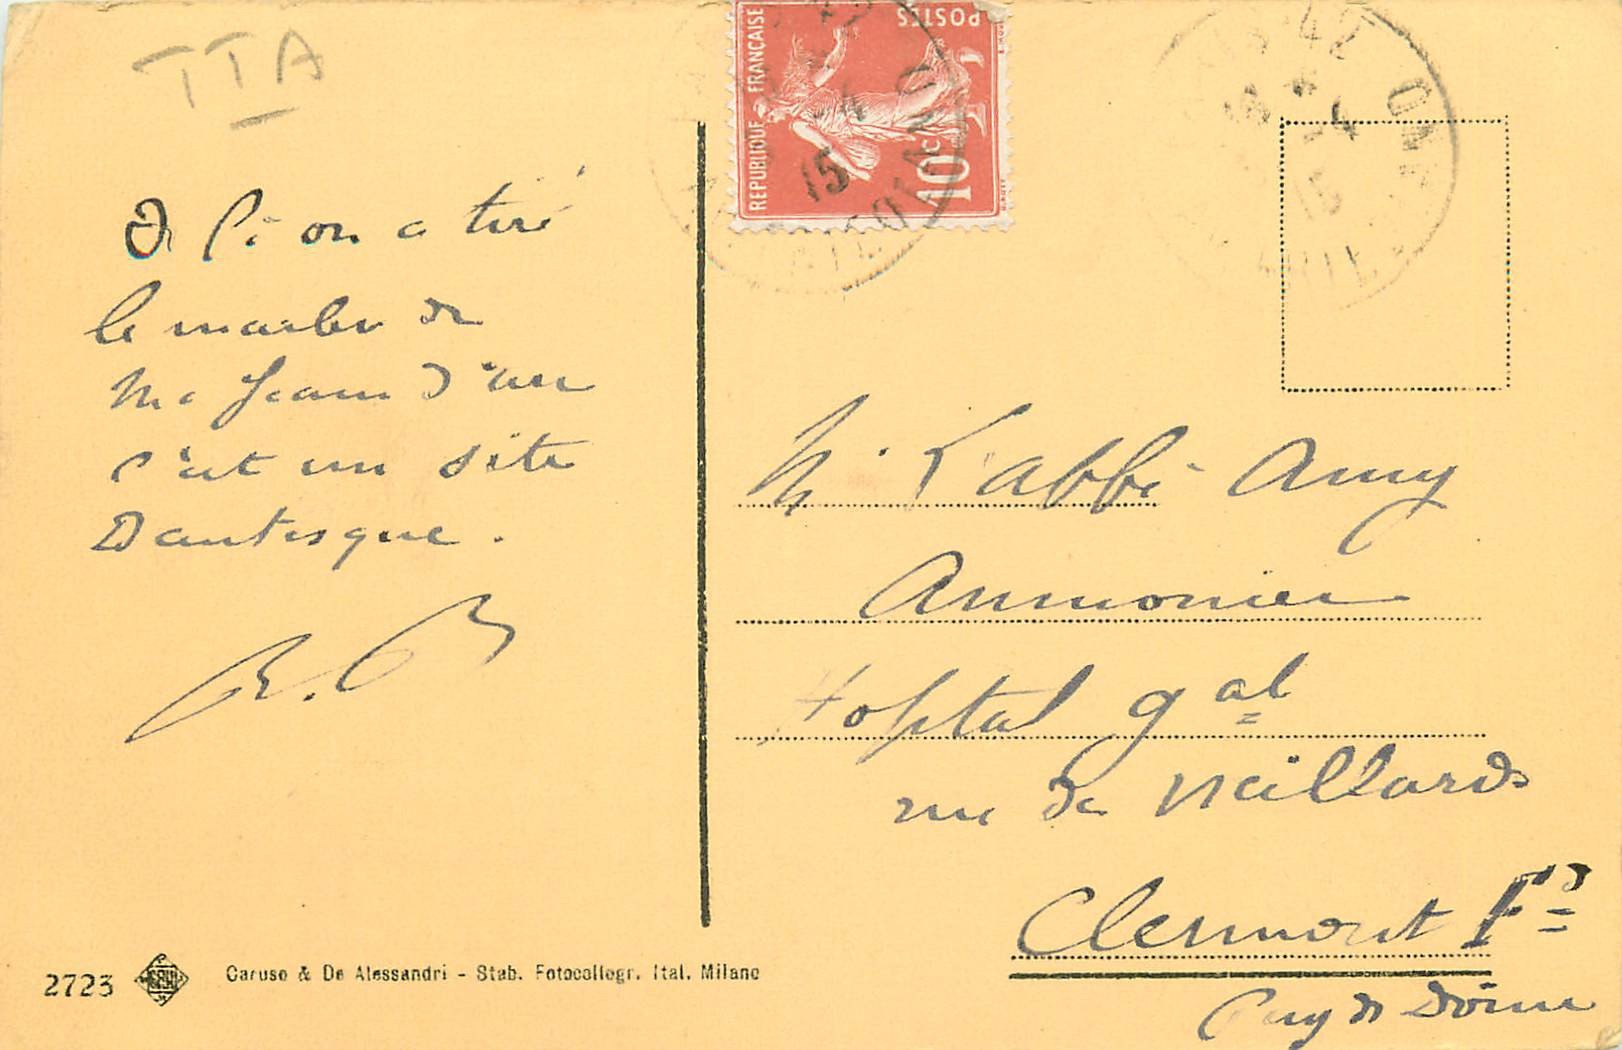 TTA
D'ici on a tiré
le marbre de
Me Jeanne d'arc
c'est un site
Dantesque.
R. B
2723
Caruso & De Alessandri - Stab. Fotocollogr. Ital. Milano
REPUBLIQUE FRANÇAISE
POSTES
10c
15
M. l'abbé Amy
Aumonier
Hopital gal
rue des vieillards
Clermont Fd
Puy de Dôme